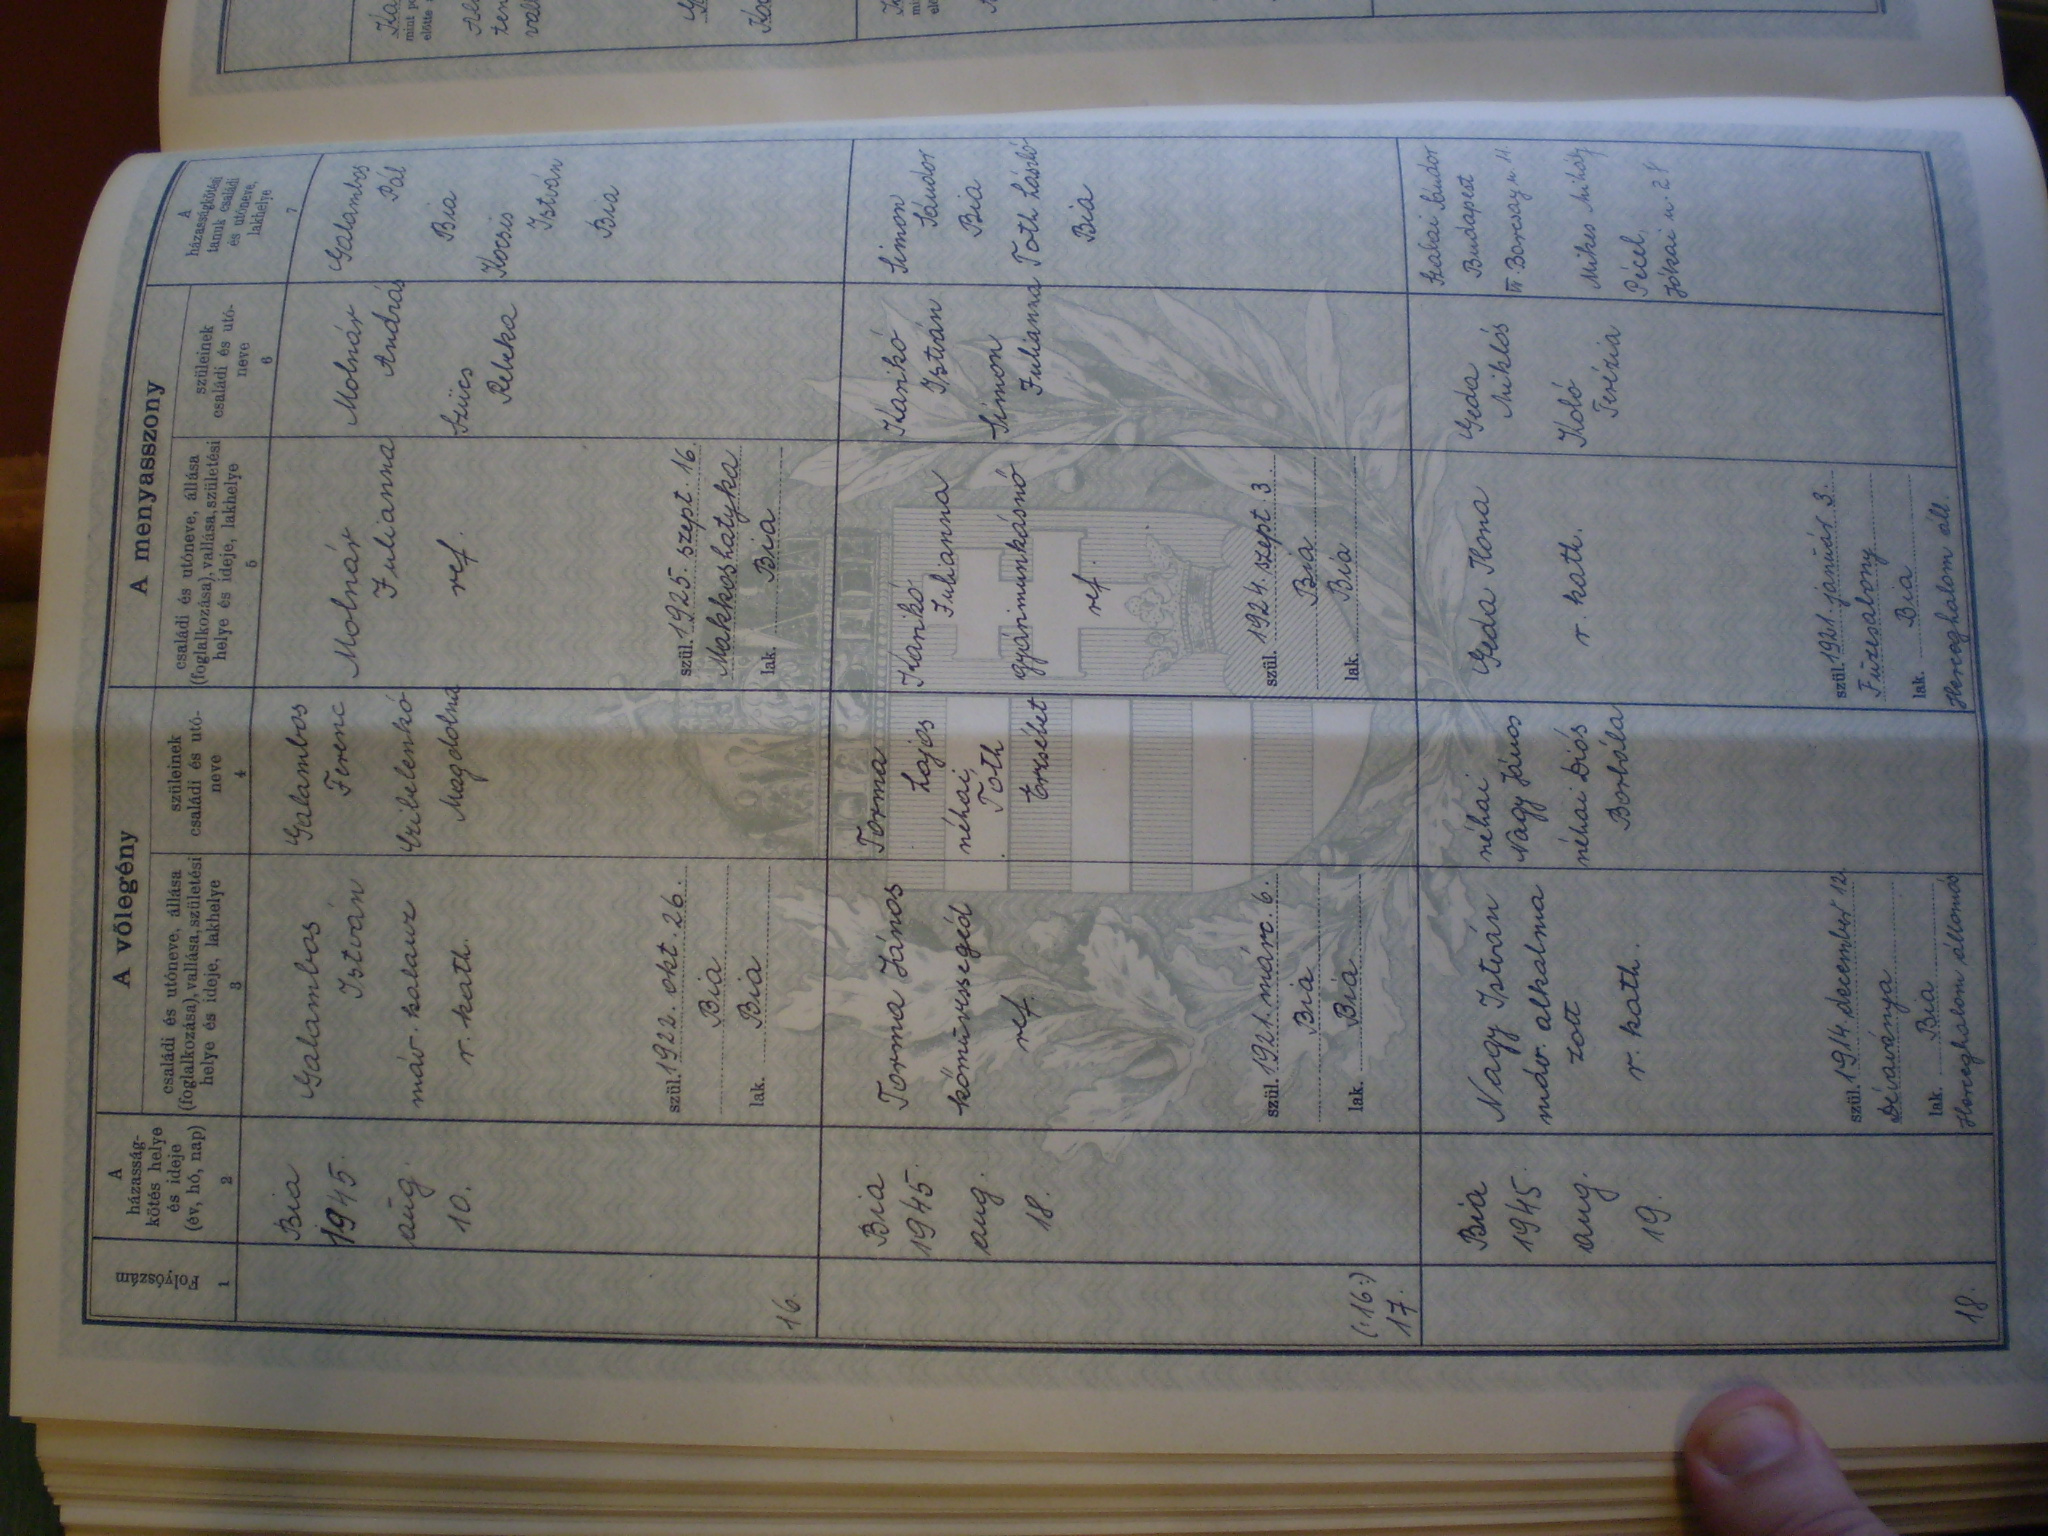 A vőlegény
A menyasszony
Folyószám
1
A
házasság-
kötés helye
és ideje
(év, hó, nap)
2
családi és utóneve, állása
(foglalkozása), vallása, születési
helye és ideje, lakhelye
3
szüleinek
családi és utó-
neve
4
családi és utóneve, állása
(foglalkozása), vallása, születési
helye és ideje, lakhelye
5
szüleinek
családi és utó-
neve
6
A
házasságkötési
tanuk családi
és utóneve,
lakhelye
7
16.
Bia
1945.
aug.
10.
Galambos
István
máv. kalauz
r. kath.
szül. 1922. okt. 26.
Bia
lak. Bia
Galambos
Ferenc
Czibelenkó
Magdolna
Molnár
Julianna
ref.
szül. 1925. szept. 16.
Makkoshatyka
lak. Bia
Molnár
András
Szücs
Rebeka
Galambos
Pál
Bia
Kocsis
István
Bia
(:16:)
17.
Bia
1945.
aug.
18.
Torma János
kőmüvessegéd
ref.
szül. 1921. márc. 6.
Bia
lak. Bia
Torma
Lajos
néhai
Toth
Erzsébet
Kankó
Julianna
gyárimunkásnő
ref.
szül. 1924. szept. 3.
Bia
lak. Bia
Kankó
István
Simon
Julianna
Simon
Sándor
Bia
Toth László
Bia
18.
Bia
1945.
aug.
19.
Nagy István
máv. alkalma
zott
r. kath.
szül. 1914. december 12.
Dévaványa
lak. Bia
Herceghalom állomás
néhai
Nagy János
néhai Diós
Borbála
Geda Ilona
r. kath.
szül. 1921. január 3.
Füzesabony
lak. Bia
Herceghalom áll.
Geda
Miklós
Koló
Terézia
Szabai Sándor
Budapest
Baross u. 11.
Mikes Mihály
Pécel,
Jókai u. 28